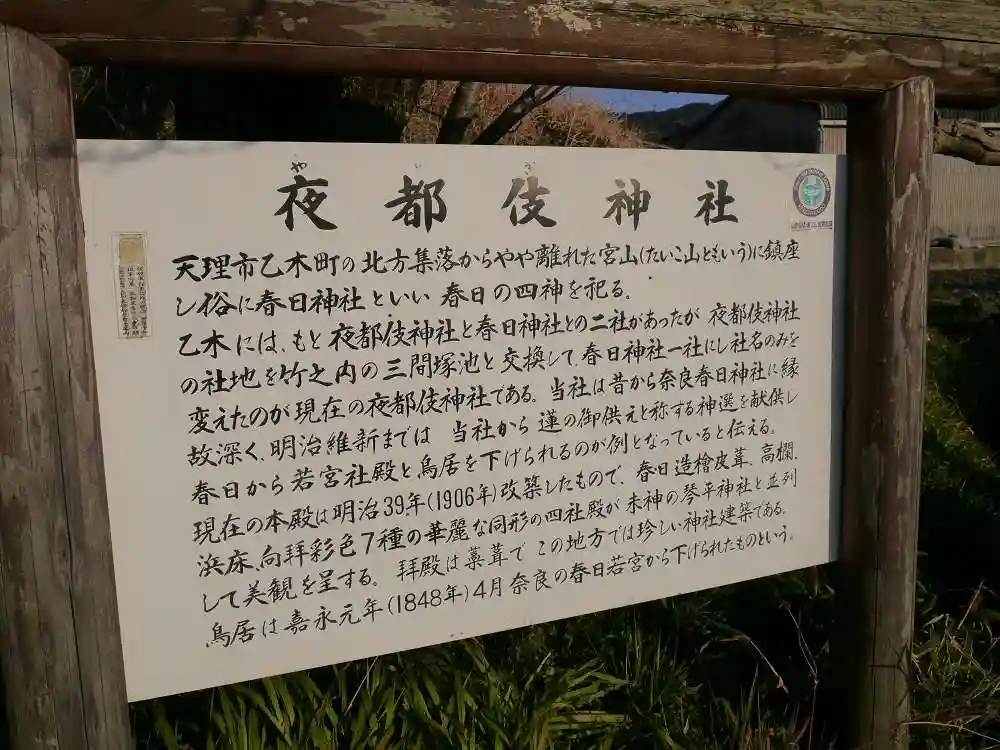 夜都伎神社
天理市乙木町の北方集落からやや離れた宮山(たいこ山ともいう)に鎮座
し俗に春日神社といい 春日の四神を祀る。
乙木には、もと夜都伎神社と春日神社との二社があったが 夜都伎神社
の社地を竹之内の三間塚池と交換して、春日神社一社にし社名のみを
変えたのが現在の夜都伎神社である。当社は昔から奈良春日神社に縁
故深く、明治維新までは 当社から蓮の御供えと称する神選を献供し
春日から若宮社殿と、鳥居を下げられるのが例となっていると伝える。
現在の本殿は明治39年(1906年)改築したもので、春日造檜皮葺、高欄、
浜床、向拝彩色7種の華麗な同形の四社殿が末神の琴平神社と並列
して美観を呈する。 拝殿は藁葺で この地方では珍しい神社建築である。
鳥居は嘉永元年(1848年)4月奈良の春日若宮から下げられたものという。